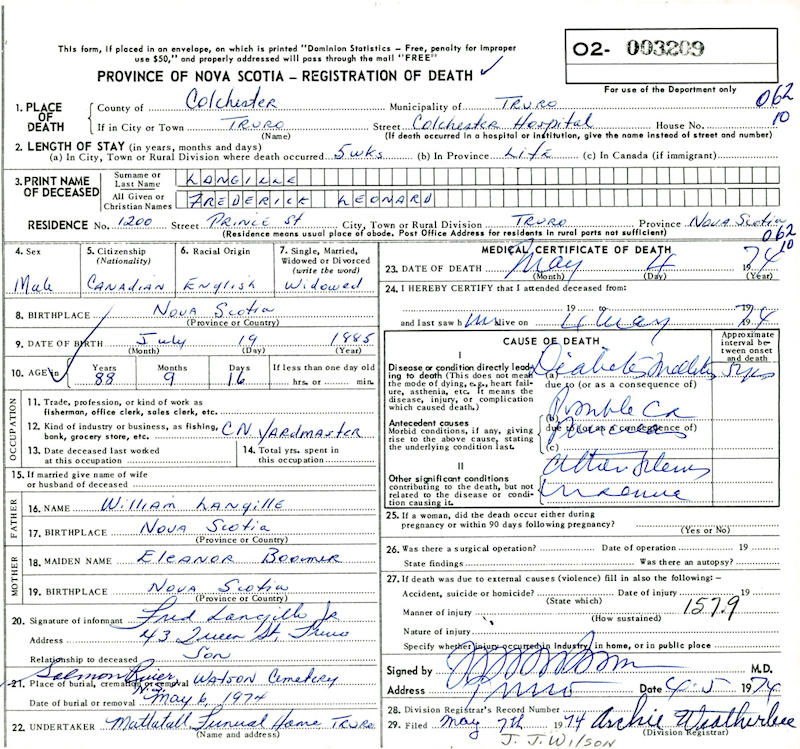 This form, if placed in an envelope, on which is printed "Dominion Statistics – Free, penalty for improper
use $50," and properly addressed will pass through the mail "FREE"
O2- 003209
PROVINCE OF NOVA SCOTIA – REGISTRATION OF DEATH ✓
For use of the Department only
062
10
1. PLACE OF DEATH
County of Colchester Municipality of TRURO
If in City or Town TRURO Street Colchester Hospital House No.
(Name) (If death occurred in a hospital or institution, give the name instead of street and number)
2. LENGTH OF STAY (in years, months and days)
(a) In City, Town or Rural Division where death occurred 5 wks (b) In Province Life (c) In Canada (if immigrant)
3. PRINT NAME OF DECEASED
Surname or Last Name LANGILLE
All Given or Christian Names FREDERICK LEONARD
RESIDENCE No. 1200 Street Prince St City, Town or Rural Division TRURO Province Nova Scotia
(Residence means usual place of abode. Post Office Address for residents in rural parts not sufficient)
062
10
4. Sex Male
5. Citizenship (Nationality) CANADIAN
6. Racial Origin English
7. Single, Married, Widowed or Divorced (write the word) Widowed
8. BIRTHPLACE Nova Scotia
(Province or Country)
9. DATE OF BIRTH July 19 1885
(Month) (Day) (Year)
10. AGE in Years Months Days If less than one day old
88 9 16 hrs. or min.
OCCUPATION
11. Trade, profession, or kind of work as
fisherman, office clerk, sales clerk, etc.
12. Kind of industry or business, as fishing,
bank, grocery store, etc. CN YARDMASTER
13. Date deceased last worked
at this occupation
14. Total yrs. spent in
this occupation
15. If married give name of wife
or husband of deceased
FATHER
16. NAME William Langille
17. BIRTHPLACE Nova Scotia
(Province or Country)
MOTHER
18. MAIDEN NAME Eleanor Boomer
19. BIRTHPLACE Nova Scotia
(Province or Country)
20. Signature of informant Fred Langille Jr
Address 43 Queen St, Truro
Relationship to deceased Son
Salmon River
21. Place of burial, cremation or removal WATSON Cemetery
Date of burial or removal May 6, 1974
22. UNDERTAKER Mattatall Funeral Home TRURO
(Name and address)
MEDICAL CERTIFICATE OF DEATH
23. DATE OF DEATH May 4 1974
(Month) (Day) (Year)
24. I HEREBY CERTIFY that I attended deceased from:
19 to 19
and last saw him alive on 4 May 1974
CAUSE OF DEATH
Approximate interval between onset and death
I
Disease or condition directly leading to death (This does not mean
the mode of dying, e.g., heart failure, asthenia, etc. It means the
disease, injury, or complication
which caused death.)
(a) Diabetes Mellitus 5 yrs
due to (or as a consequence of)
Antecedent causes
Morbid conditions, if any, giving
rise to the above cause, stating
the underlying condition last.
(b) Possible Ca
due to (or as a consequence of)
Pancreas
(c)
II
Other significant conditions
contributing to the death, but not
related to the disease or condition causing it.
25. If a woman, did the death occur either during
pregnancy or within 90 days following pregnancy?
(Yes or No)
26. Was there a surgical operation? Date of operation 19
State findings Was there an autopsy?
27. If death was due to external causes (violence) fill in also the following:–
Accident, suicide or homicide? Date of injury 19
(State which)
Manner of injury 157.9
(How sustained)
Nature of injury
Specify whether injury occurred in industry, in home, or in public place
Signed by M.D.
Address Truro Date 4.5 1974
28. Division Registrar's Record Number
29. Filed May 7th 1974 Archie Weatherbee
(Division Registrar)
J. J. WILSON